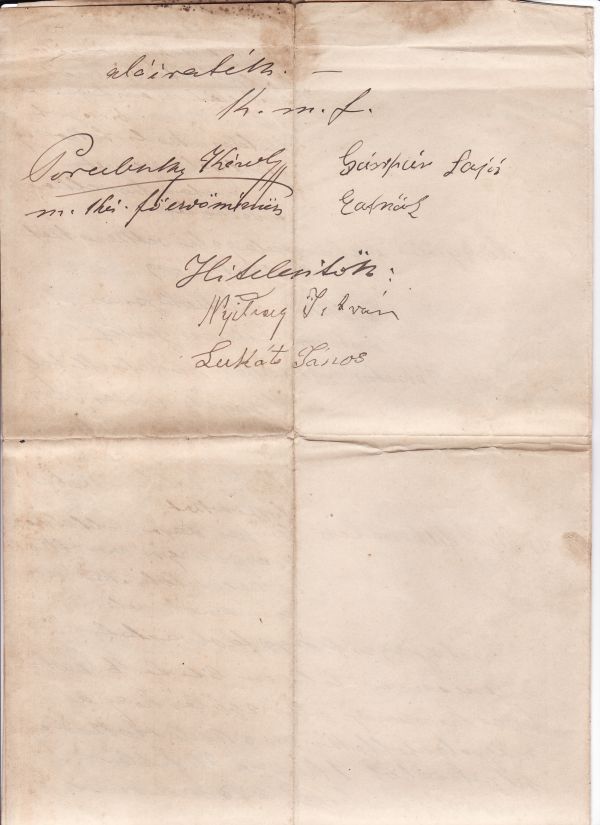 alóiraték. —
K. m. f.
Porubszky Károly
m. kir. főerdőmérnök
Gáspár Lajos
Hitelesitők:
Nyitray István
Lukáts János